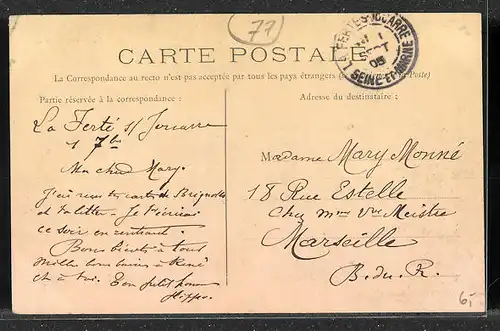 77
CARTE POSTALE
LA FERTÉ-S-JOUARRE
1
SEPT
05
SEINE-ET-MARNE
La Correspondance au recto n'est pas acceptée par tous les pays étrangers (
Poste)
Partie réservée à la correspondance :
Adresse du destinataire :
La Ferté s/ Jouarre
1 7bre
Ma chère Mary.
J'ai reçu ta carte de Brignolles
et ta lettre. Je t'écrirai
ce soir en rentrant.
Bons bécots à tous
mille bons baisers à René
et à toi. Ton petit homme
Hippo.
Madame Mary Monné
18 Rue Estelle
chez Mme Vve Meistre
Marseille
B. du. R.
6,-